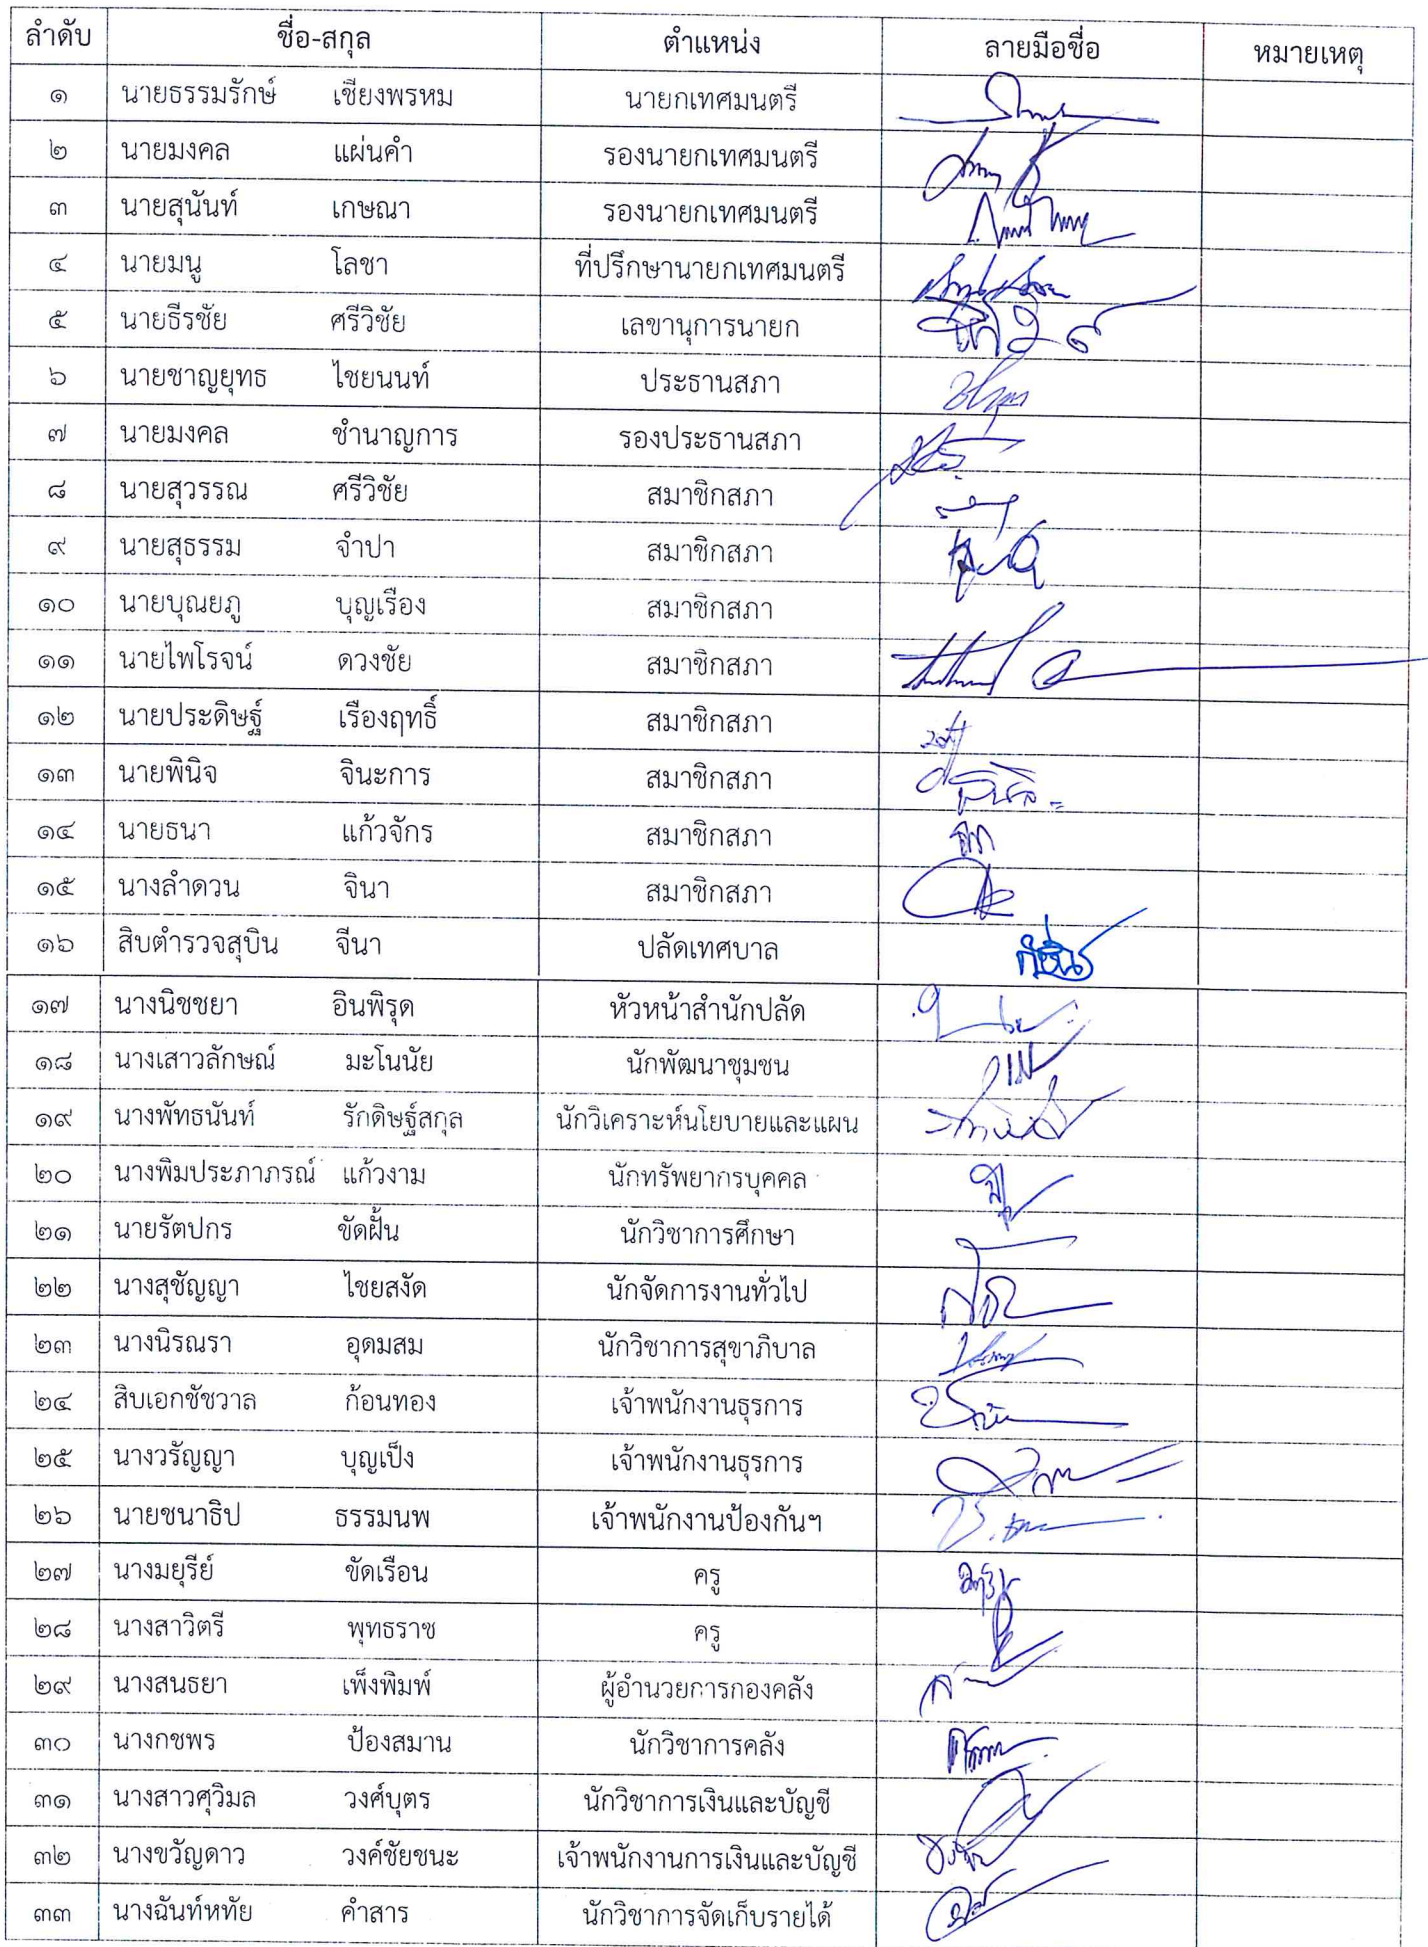 ลำดับ ชื่อ-สกุล ตำแหน่ง ลายมือชื่อ หมายเหตุ
๑ นายธรรมรักษ์ เชียงพรหม นายกเทศมนตรี
๒ นายมงคล แผ่นคำ รองนายกเทศมนตรี
๓ นายสุนันท์ เกษณา รองนายกเทศมนตรี
๔ นายมนู โลชา ที่ปรึกษานายกเทศมนตรี
๕ นายธีรชัย ศรีวิชัย เลขานุการนายก
๖ นายชาญยุทธ ไชยนนท์ ประธานสภา
๗ นายมงคล ชำนาญการ รองประธานสภา
๘ นายสุวรรณ ศรีวิชัย สมาชิกสภา
๙ นายสุธรรม จำปา สมาชิกสภา
๑๐ นายบุณยภู บุญเรือง สมาชิกสภา
๑๑ นายไพโรจน์ ดวงชัย สมาชิกสภา
๑๒ นายประดิษฐ์ เรืองฤทธิ์ สมาชิกสภา
๑๓ นายพินิจ จินะการ สมาชิกสภา
๑๔ นายธนา แก้วจักร สมาชิกสภา
๑๕ นางลำดวน จินา สมาชิกสภา
๑๖ สิบตำรวจสุบิน จีนา ปลัดเทศบาล
๑๗ นางนิชชยา อินพิรุด หัวหน้าสำนักปลัด
๑๘ นางเสาวลักษณ์ มะโนนัย นักพัฒนาชุมชน
๑๙ นางพัทธนันท์ รักดิษฐ์สกุล นักวิเคราะห์นโยบายและแผน
๒๐ นางพิมประภาภรณ์ แก้วงาม นักทรัพยากรบุคคล
๒๑ นายรัตปกร ขัดฝั้น นักวิชาการศึกษา
๒๒ นางสุชัญญา ไชยสงัด นักจัดการงานทั่วไป
๒๓ นางนิรณรา อุดมสม นักวิชาการสุขาภิบาล
๒๔ สิบเอกชัชวาล ก้อนทอง เจ้าพนักงานธุรการ
๒๕ นางวรัญญา บุญเป็ง เจ้าพนักงานธุรการ
๒๖ นายชนาธิป ธรรมนพ เจ้าพนักงานป้องกันฯ
๒๗ นางมยุรีย์ ขัดเรือน ครู
๒๘ นางสาวิตรี พุทธราช ครู
๒๙ นางสนธยา เพ็งพิมพ์ ผู้อำนวยการกองคลัง
๓๐ นางกชพร ป้องสมาน นักวิชาการคลัง
๓๑ นางสาวศุวิมล วงศ์บุตร นักวิชาการเงินและบัญชี
๓๒ นางขวัญดาว วงค์ชัยชนะ เจ้าพนักงานการเงินและบัญชี
๓๓ นางฉันท์หทัย คำสาร นักวิชาการจัดเก็บรายได้